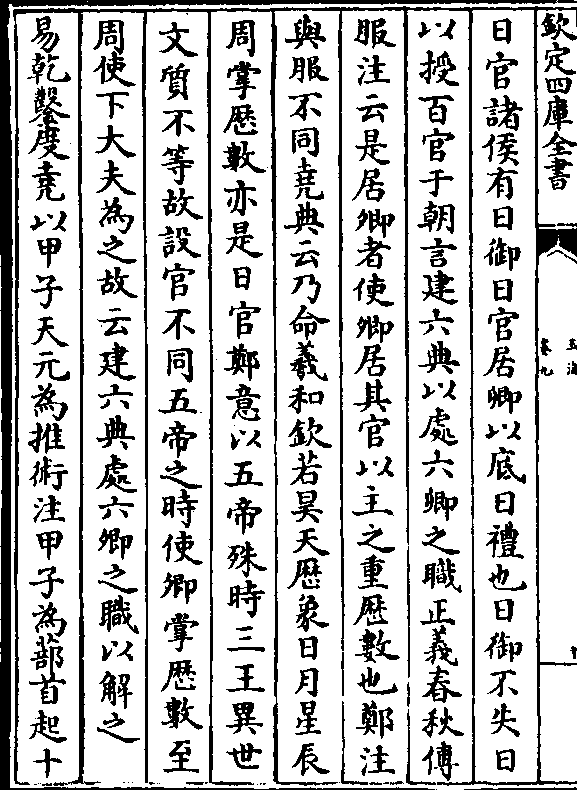 欽定四庫全書
玉海
卷九
日官諸侯有日御日官居卿以底日禮也日御不失日
以授百官于朝言建六典以處六卿之職正義春秋傳
服注云是居卿者使卿居其官以主之重歴數也鄭注
與服不同堯典云乃命羲和欽若昊天歴象日月星辰
周掌歴數亦是日官鄭意以五帝殊時三王異世
文質不等故設官不同五帝之時使卿掌歴數至
周使下大夫為之故云建六典處六卿之職以解之
易乾鑿度堯以甲子天元為推術注甲子為蔀首起十